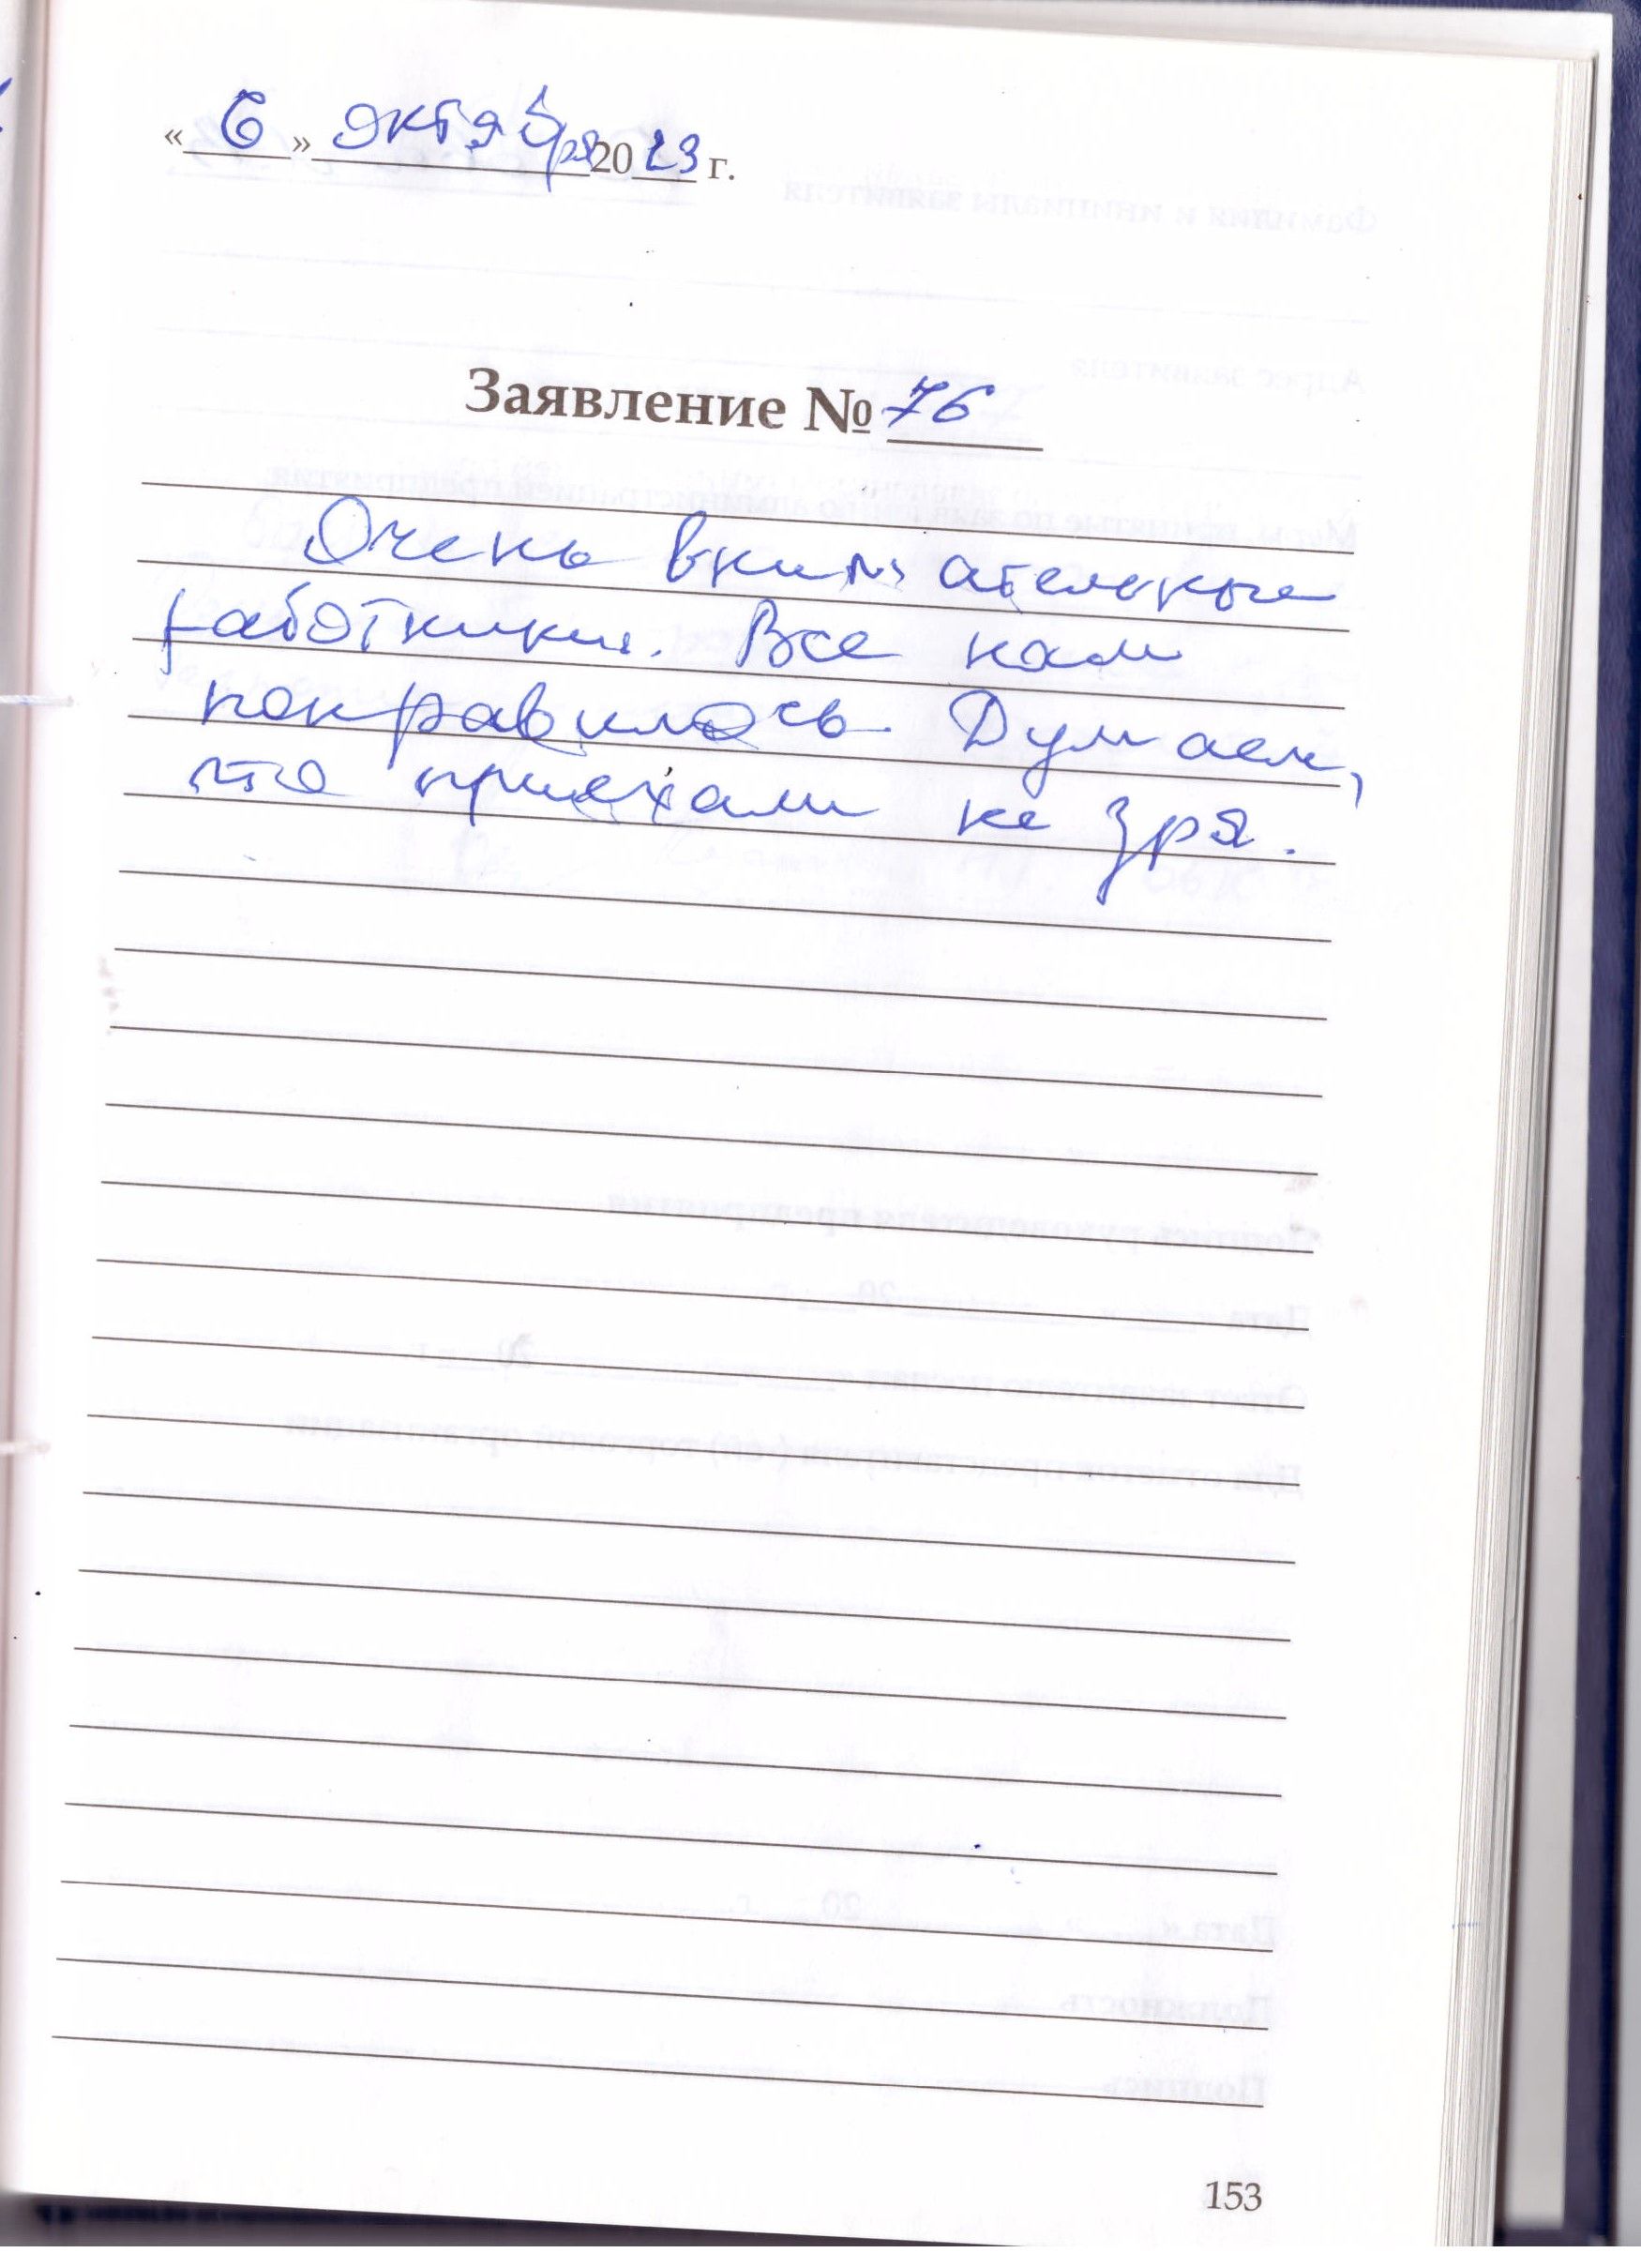 «6» октября 2023 г.
Заявление № 76
Очень внимательные
работники. Все нам
понравилось. Думаем,
что приехали не зря.
153